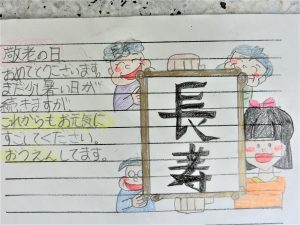 敬老の日、
おめでとうございます。
まだ少し暑い日が
続きますが
これからもお元気に
すごしてください。
おうえんしてます。
長寿